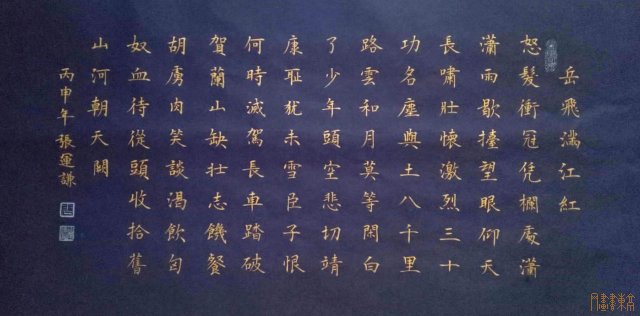 岳飛滿江紅
怒髮衝冠凭欄處瀟
瀟雨歇擡望眼仰天
長嘯壯懷激烈三十
功名塵與土八千里
路雲和月莫等閑白
了少年頭空悲切靖
康耻犹未雪臣子恨
何時滅駕長車踏破
賀蘭山缺壮志饑餐
胡虜肉笑談渴飲匈
奴血待從頭收拾舊
山河朝天闕
丙申年張運謙